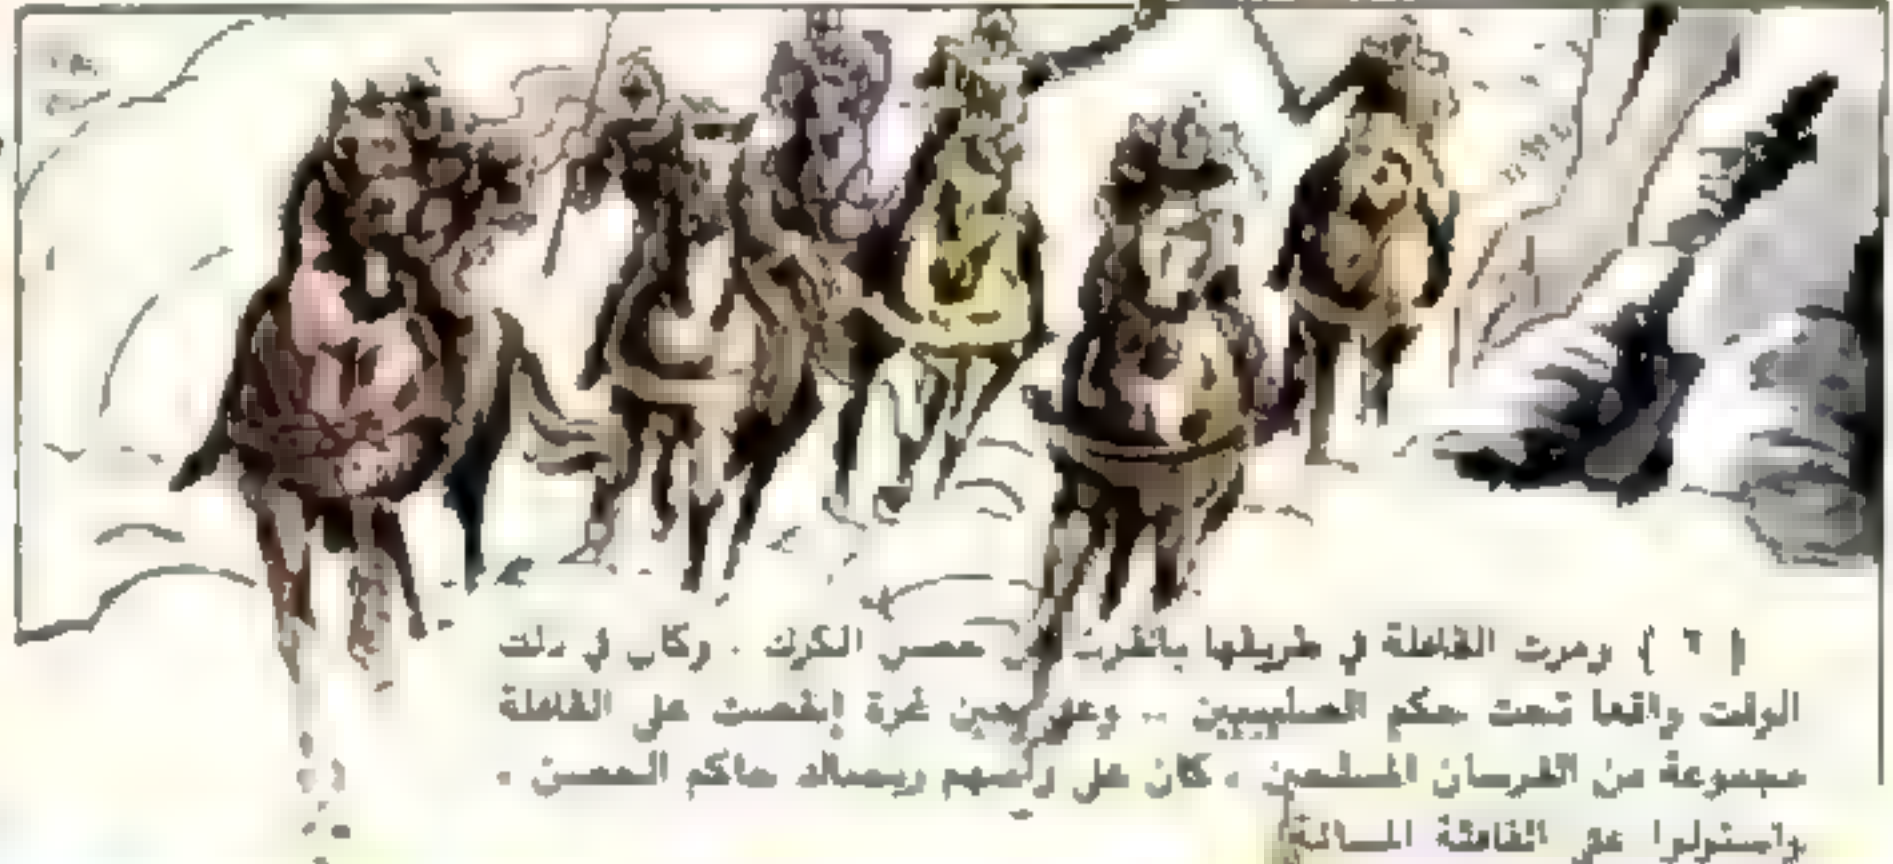 ( ٦ ) ومرت القافلة في طريقها بالقرب من حصن الكرك . وكان في ذلك
الوقت واقعا تحت حكم الصليبيين .. وعلى حين غرة إنقضت على القافلة
مجموعة من الفرسان المسلحين ، كان على رأسهم ريمالد حاكم الحصن .
واستولوا على القافلة المسالمة